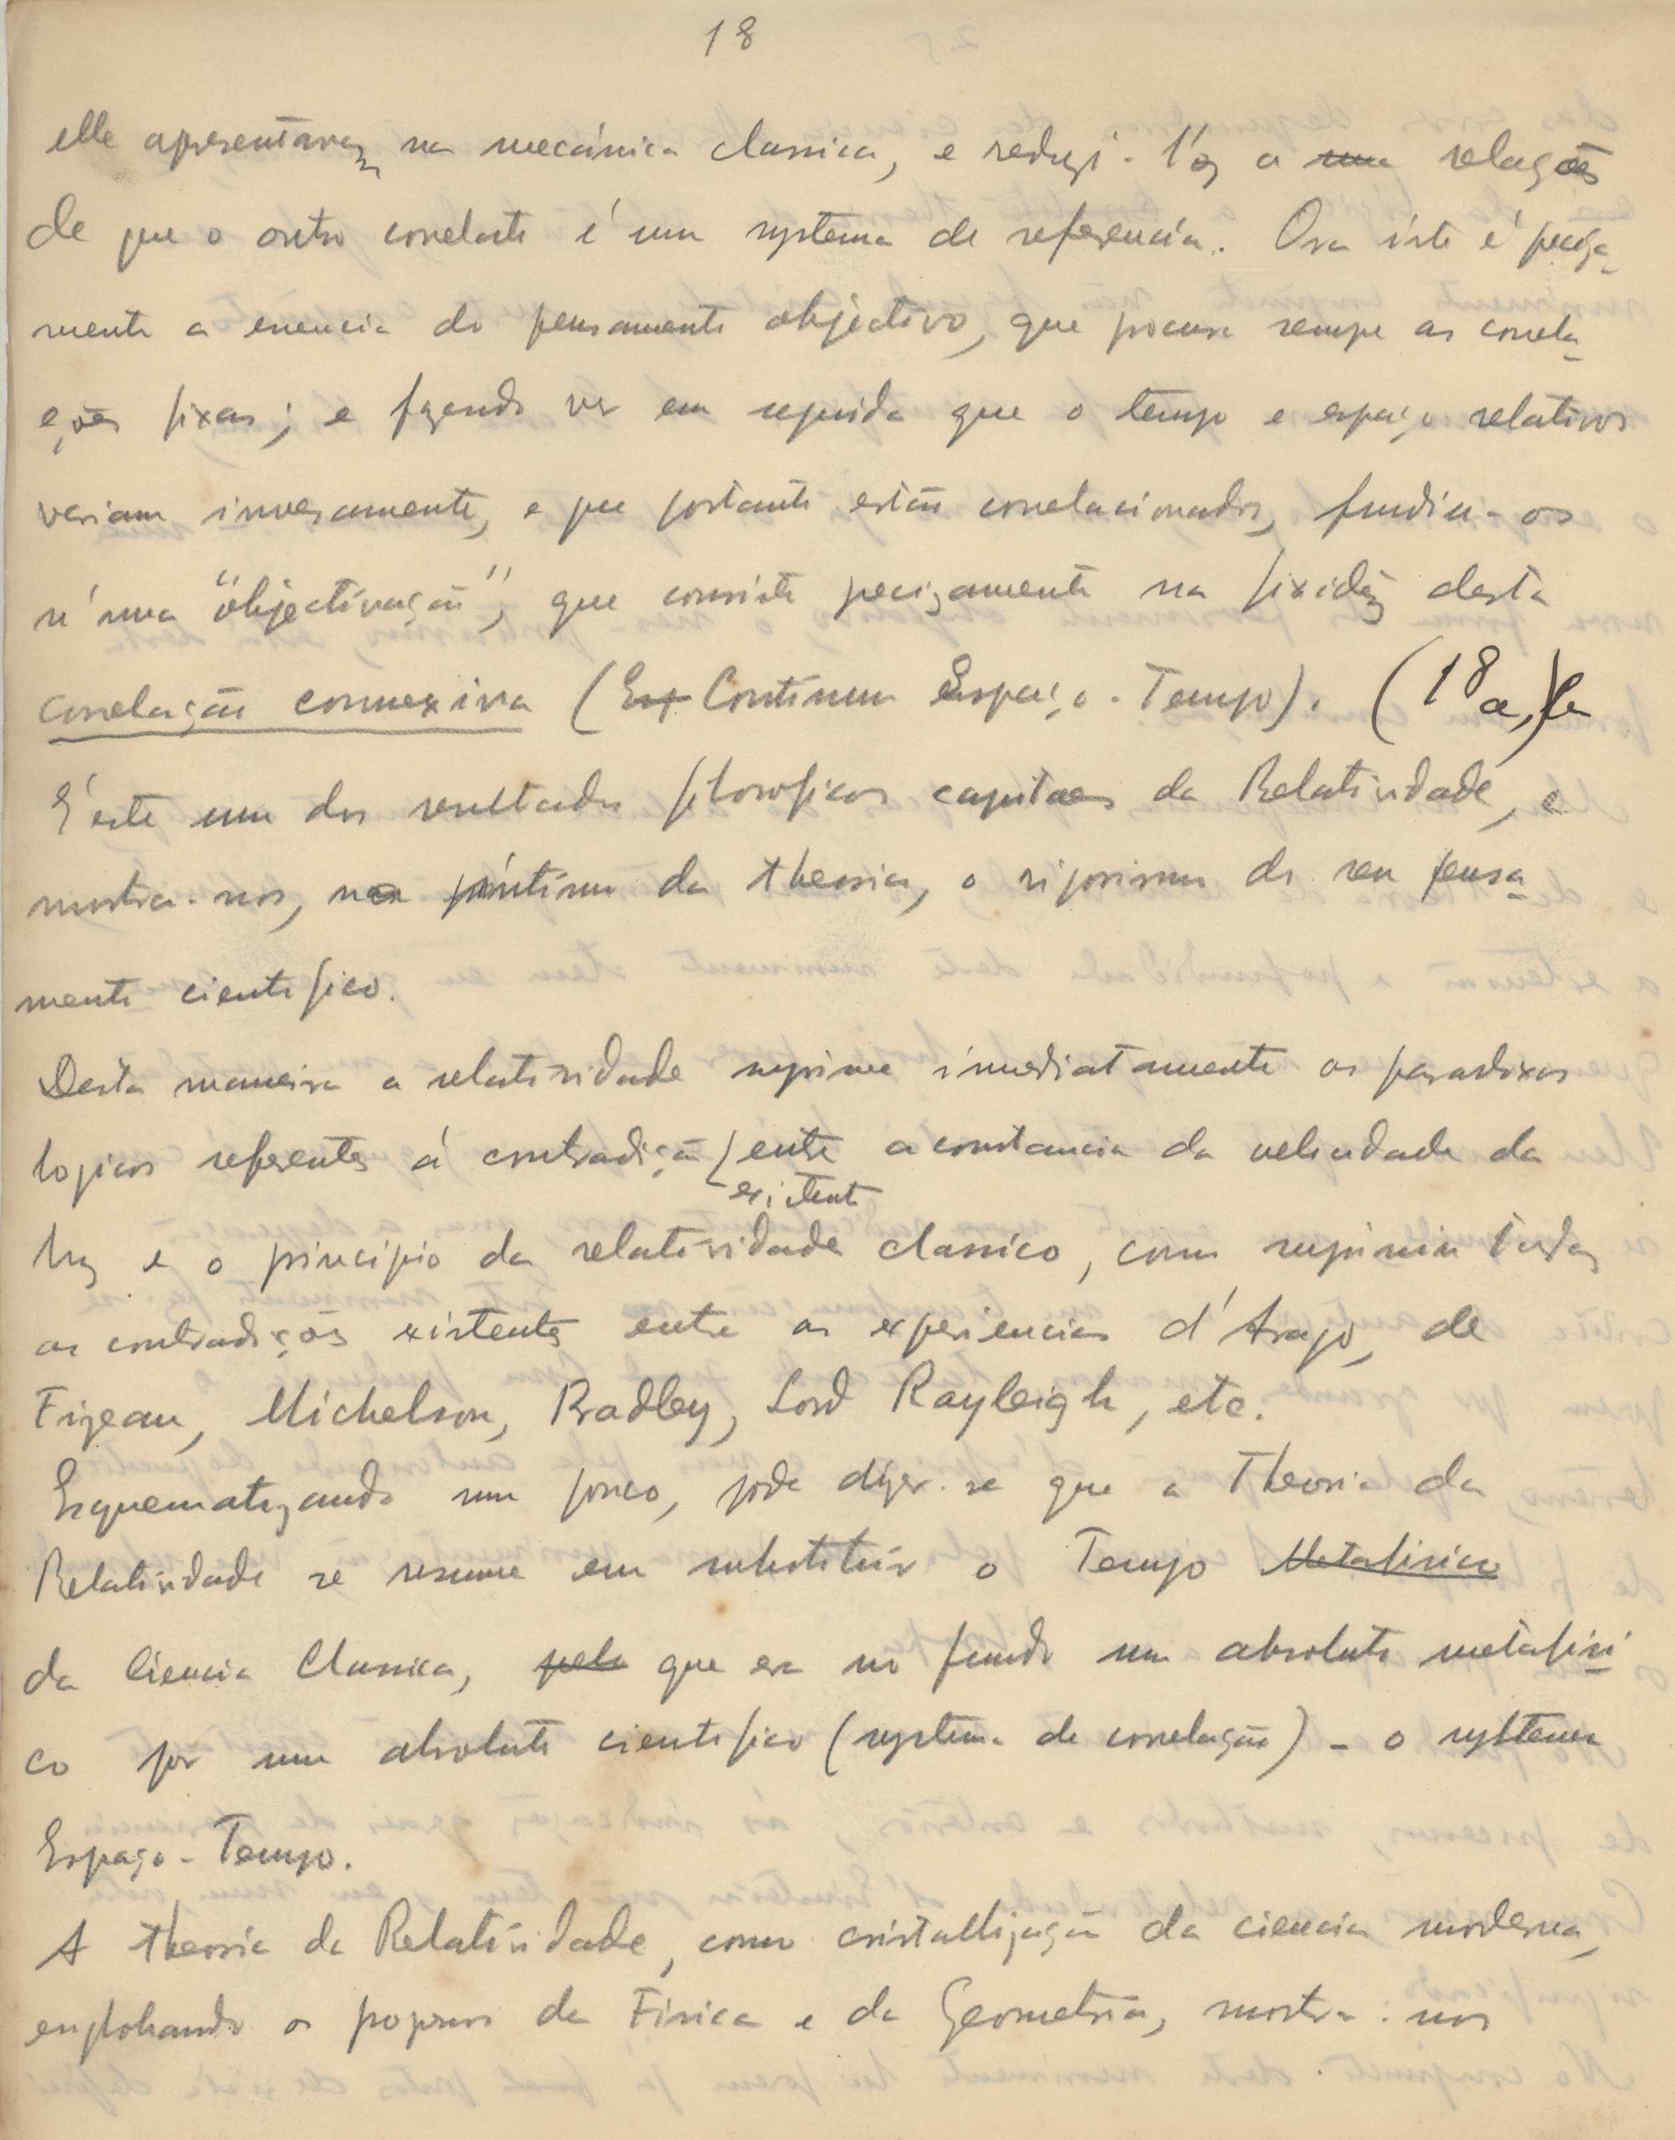 18
elle apresentavam na mecánica classica, e reduzi-l'os a uma relações
de que o outro correlato é um systema de referencia. Ora isto é preciza-
mente a essencia do pensamento objectivo, que procura sempre as correla-
ções fixas; e fazendo ver em seguida que o tempo e espaço relativos
variam inversamente, e que portanto estão correlacionados, fundiu-os
n'uma "objectivação", que consiste precizamente na fixidêz desta
correlação connexiva (Esp Continuum Espaço-Tempo). (18a,)b
E' este um dos resultados filosoficos capitaes da Relatividade, e
mostra-nos, no íntimo da theoria, o rigorismo do seu pensa-
mento cientifico.
Desta maneira a relatividade suprime imediatamente os paradoxos
logicos referentes á contradição entre a constancia da velocidade da
existente
luz e o principio da relatividade classico, como suprimiu todas
as contradições existentes entre as experiencias d'Arago, de
Fizeau, Michelson, Bradley, Lord Rayleigh, etc.
Esquematizando um pouco, pode dizer-se que a Theoria da
Relatividade se resume em substituir o Tempo Metafisico
da Ciencia Classica, pelo que era no fundo um absoluto metafisi-
co por um absoluto cientifico (systema de correlação) - o systema
Espaço-Tempo.
A theoria da Relatividade, como cristallização da ciencia moderna,
englobando os progressos da Fisica e da Geometria, mostra-nos